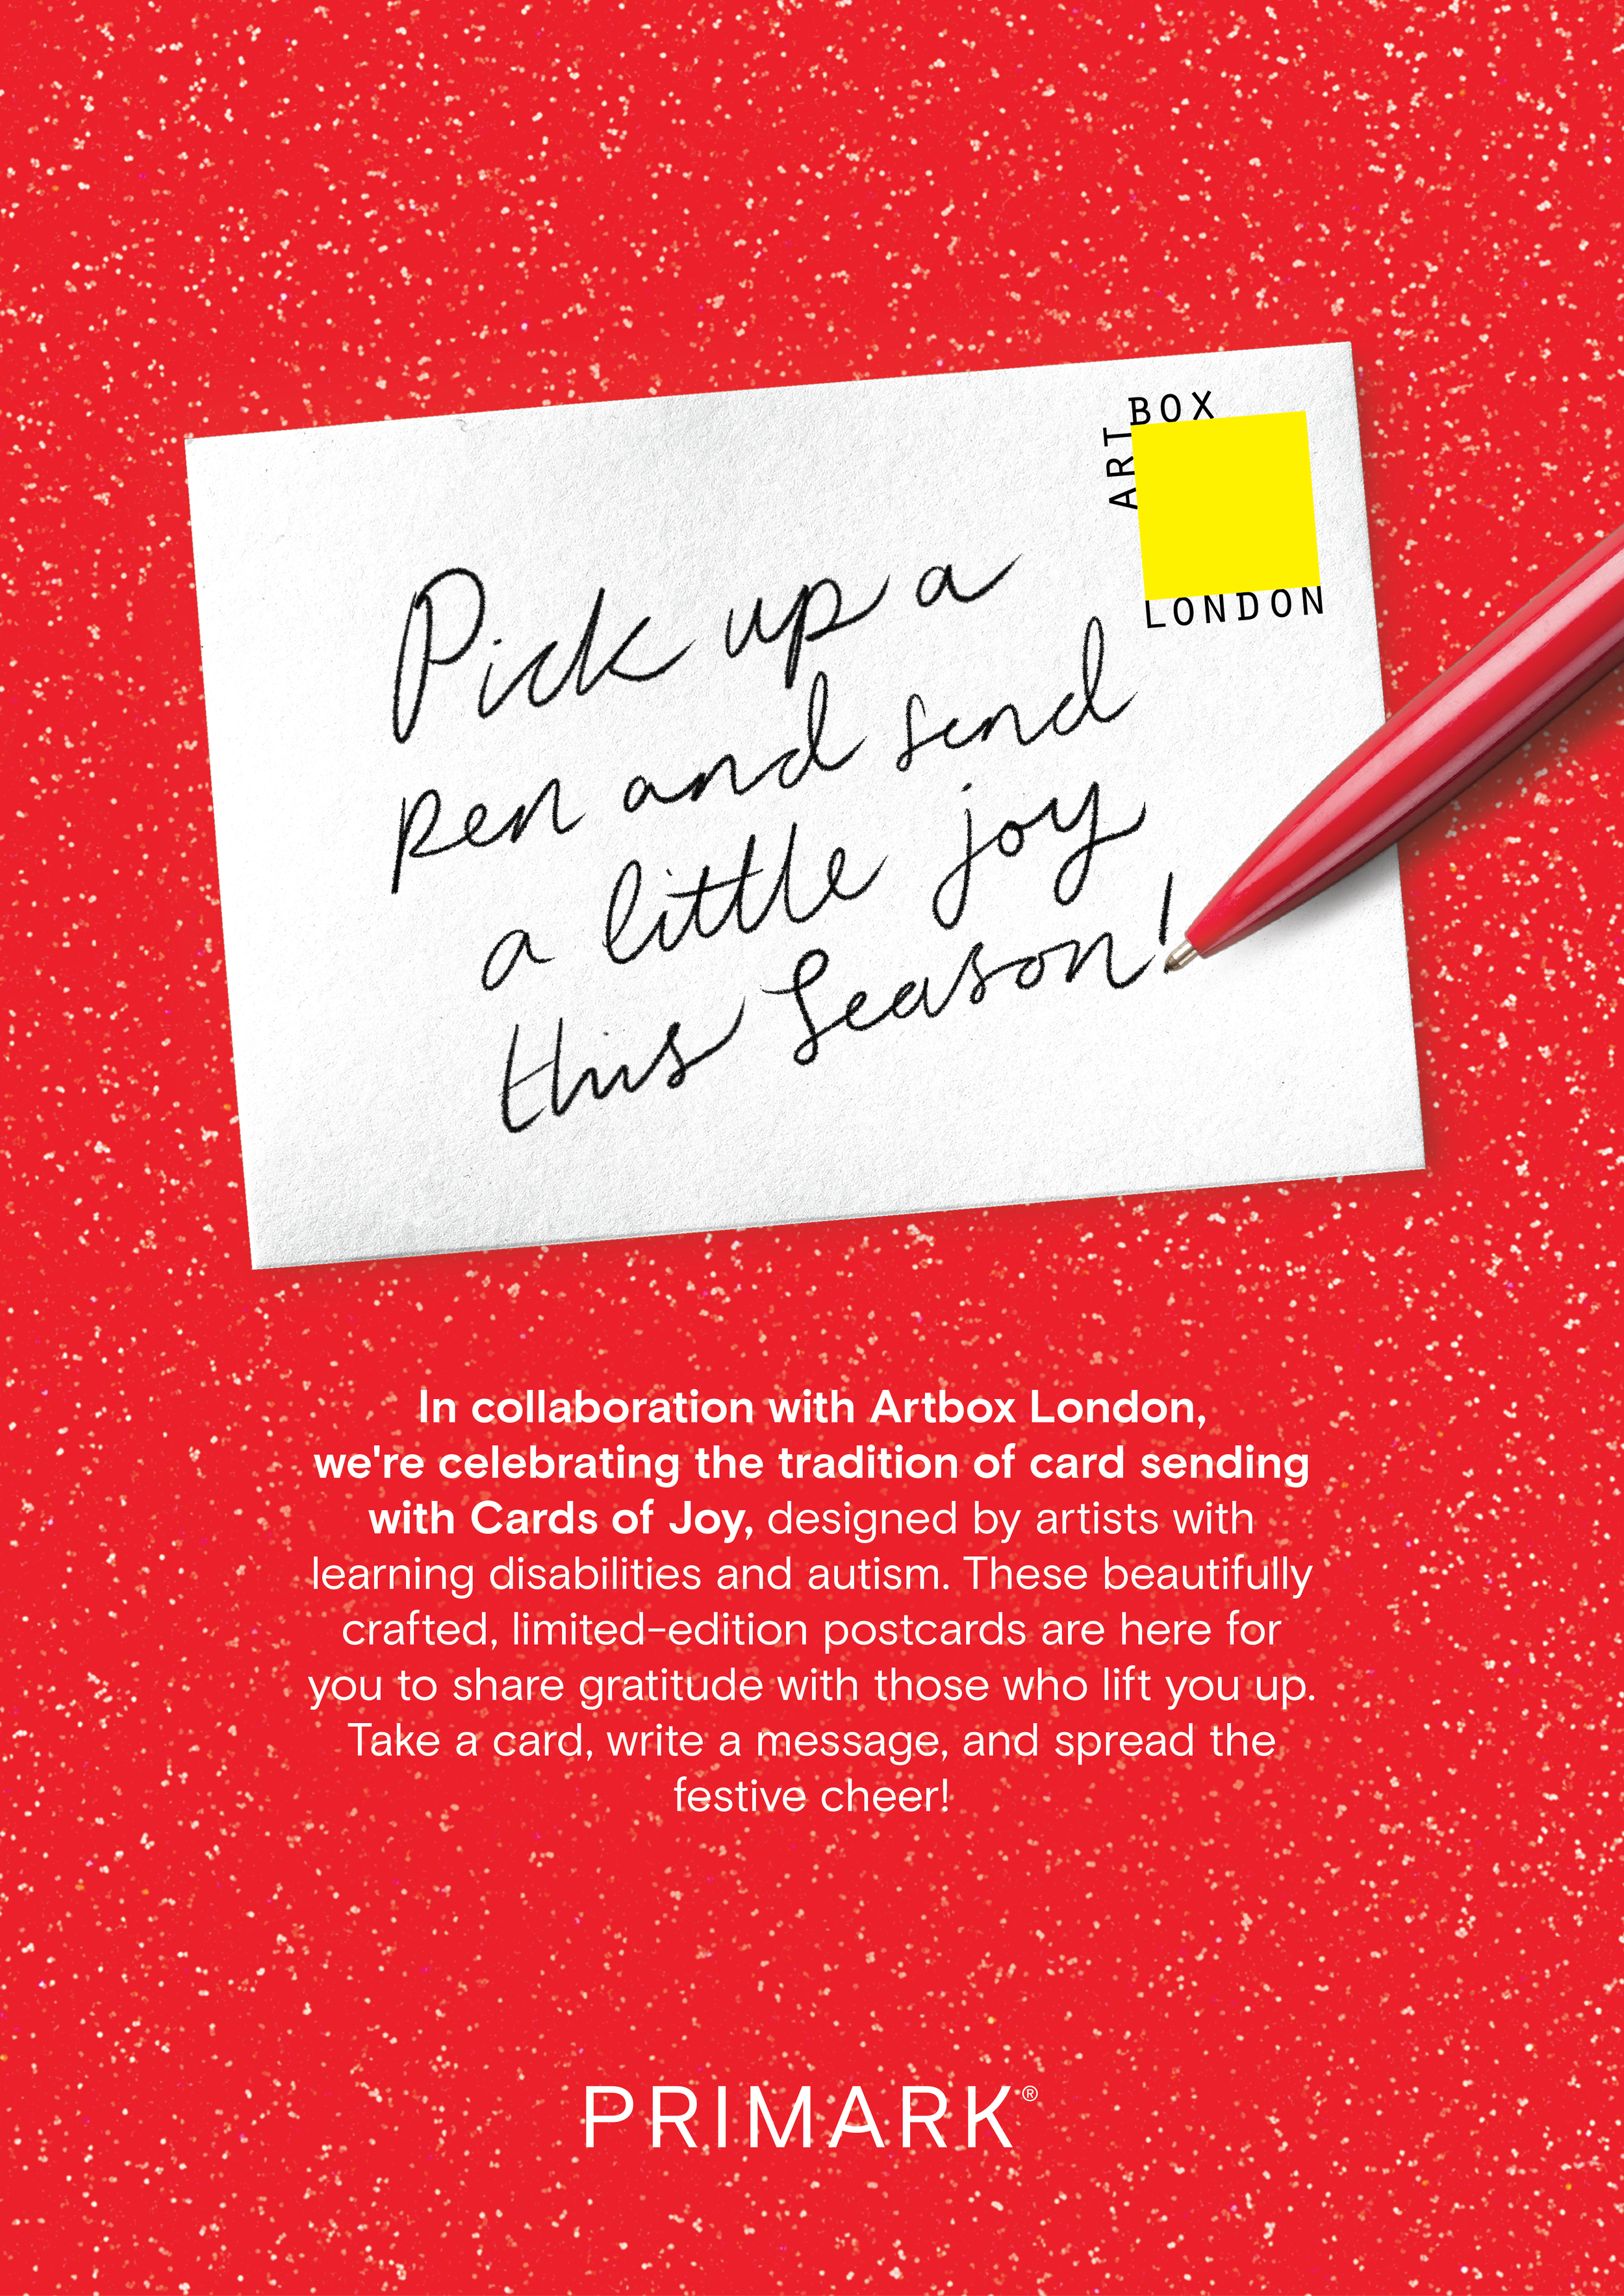 ARTBOX
LONDON
Pick up a
pen and send
a little joy
this Season!
In collaboration with Artbox London,
we're celebrating the tradition of card sending
with Cards of Joy, designed by artists with
learning disabilities and autism. These beautifully
crafted, limited-edition postcards are here for
you to share gratitude with those who lift you up.
Take a card, write a message, and spread the
festive cheer!
PRIMARK®